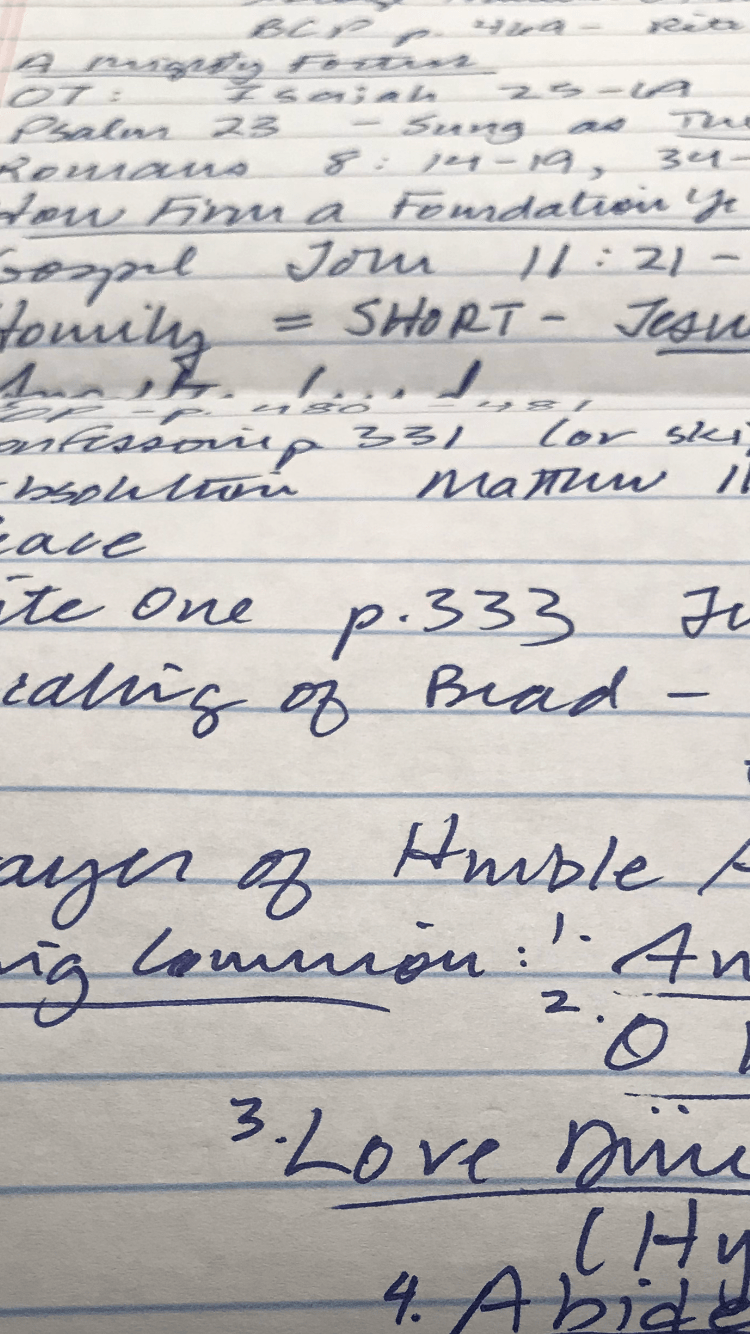 BCP p. 469 - Rite
A Mighty Fortress
OT: Isaiah 25-
Psalm 23 - Sung as The
Romans 8:14-19, 34-
How Firm a Foundation Ye
Gospel John 11:21-
Homily = SHORT - Jesu
BCP - p. 480 - 481
onfession p 331 (or ski
bsolution Matthew 11
eace
ite One p.333
eaking of Bread -
ayer of Humble A
ing Common: 1. An
2. O
3. Love Divine
(Hy
4. Abide